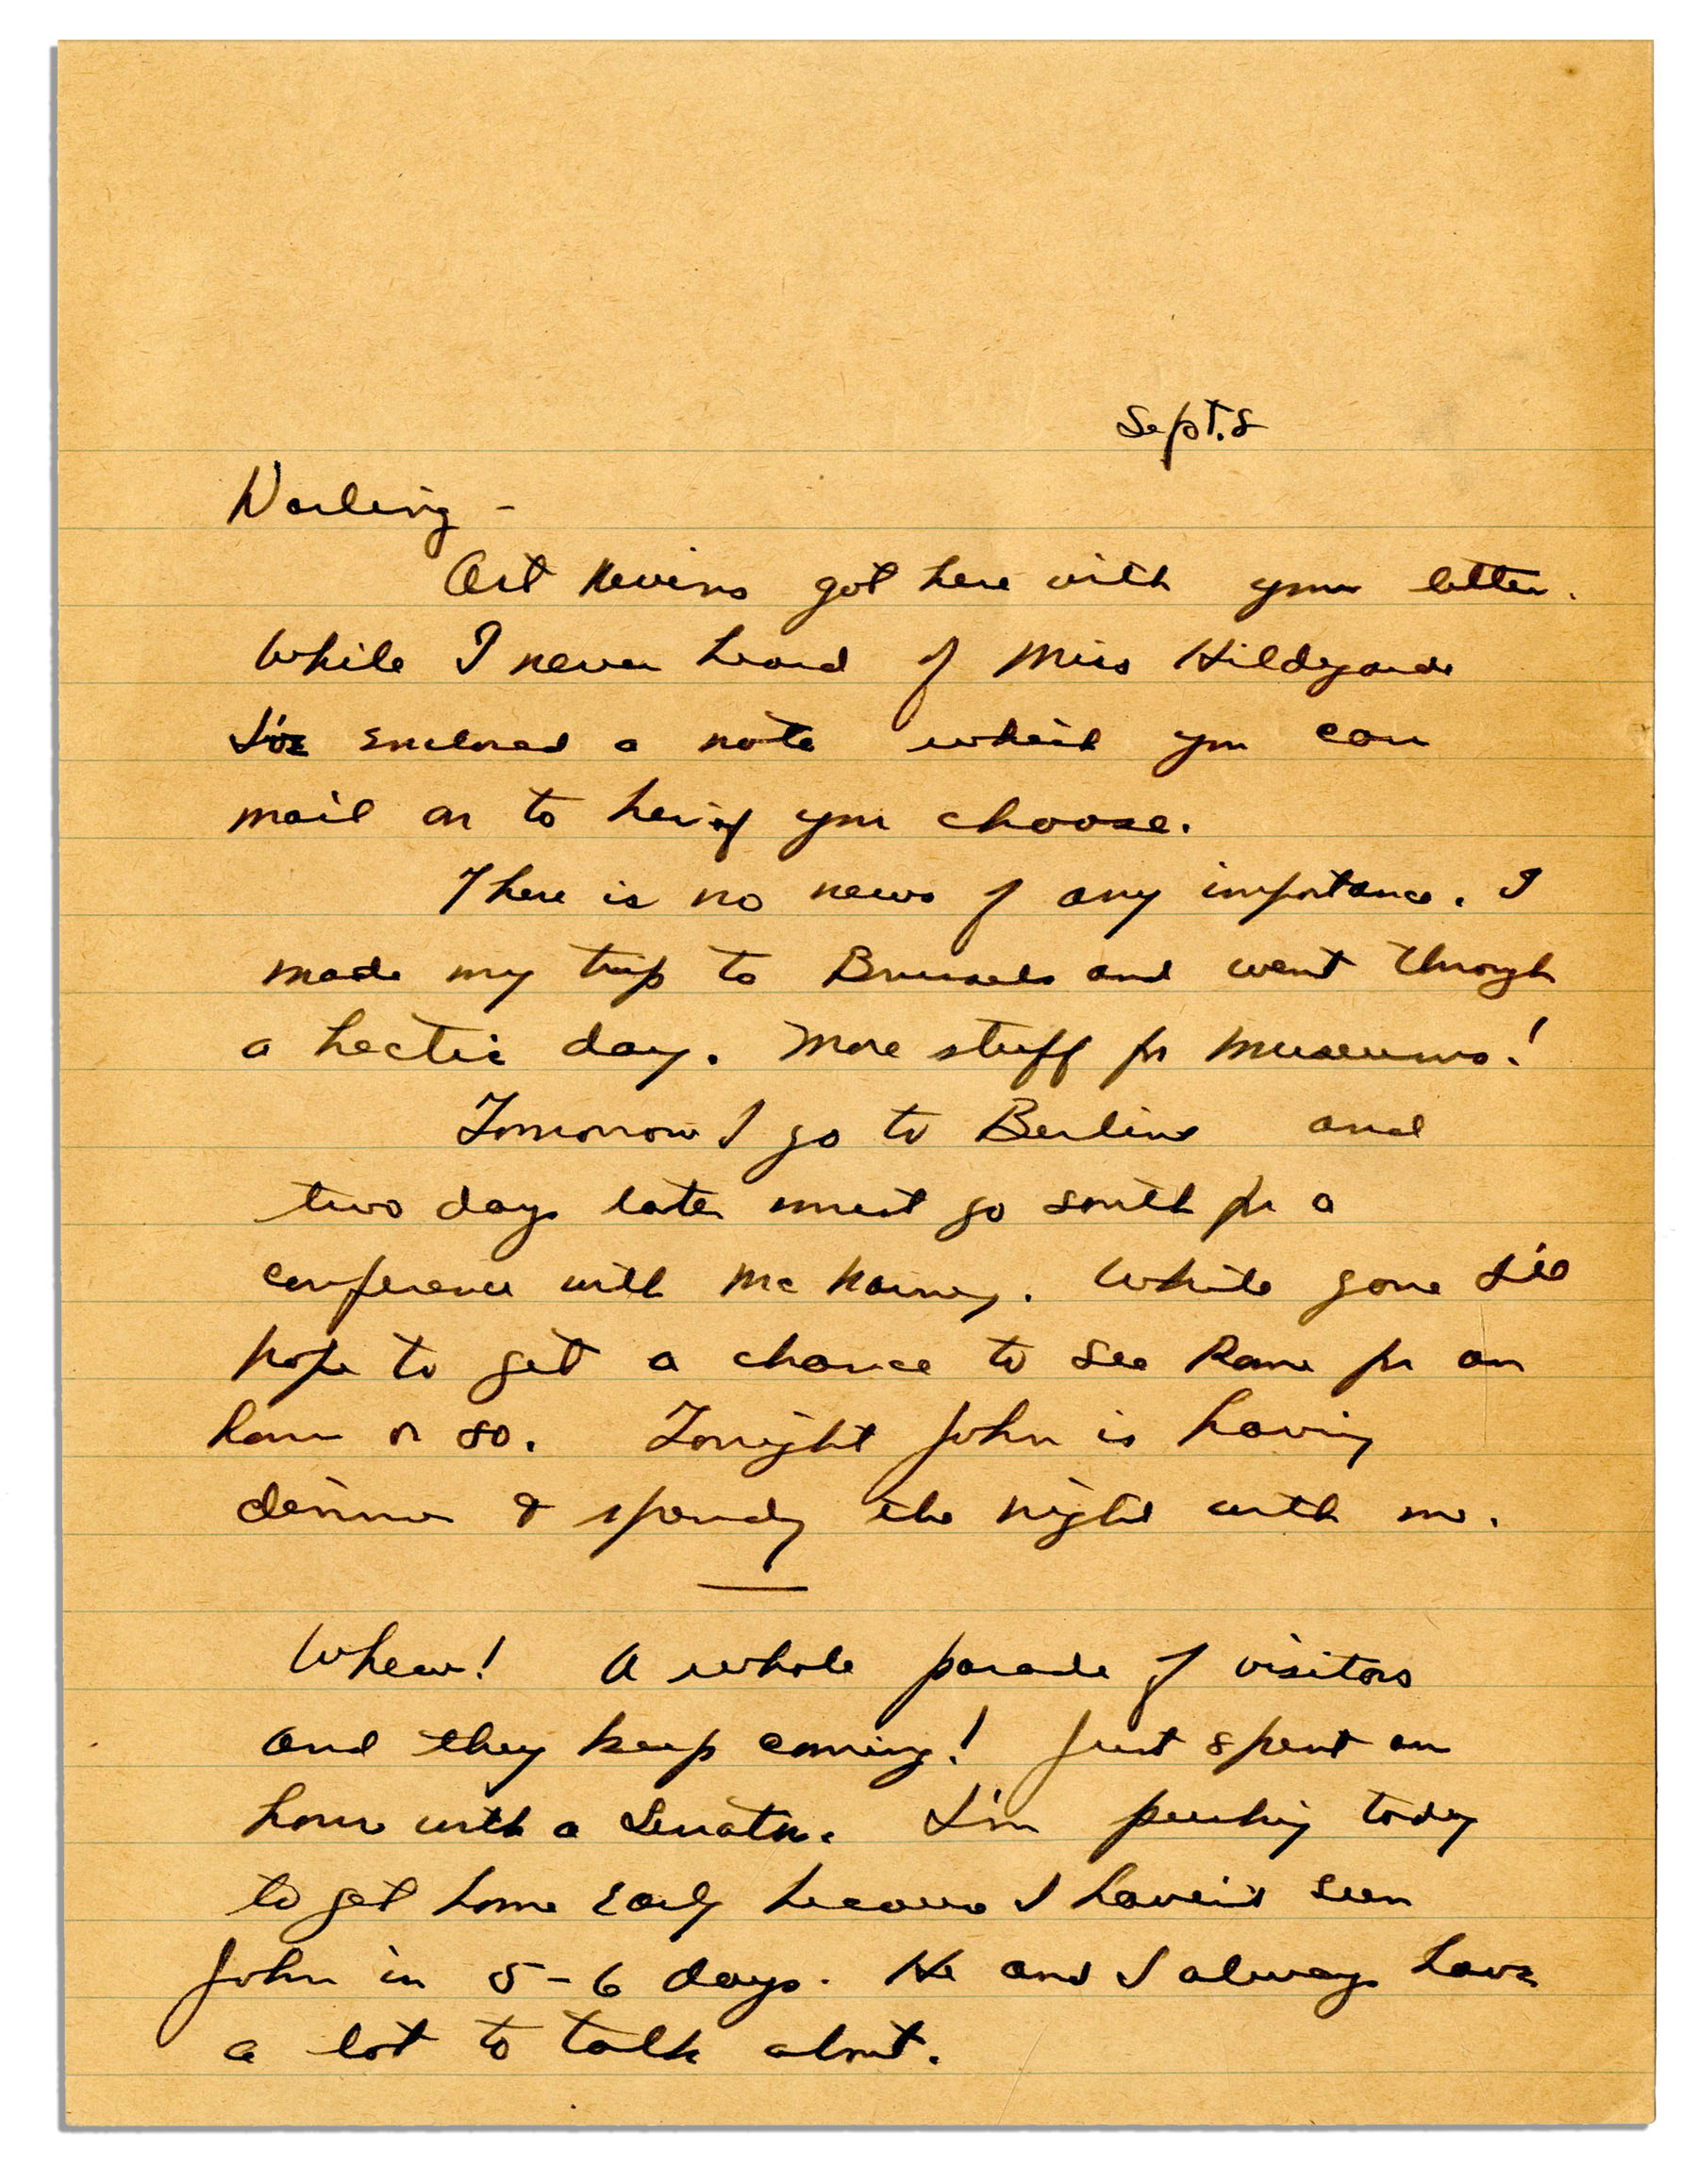 Sept. 8
Darling -
Art Nevins got here with your letter.
While I never heard of Miss Hildegarde
I've enclosed a note which you can
mail on to her if you choose.
There is no news of any importance. I
made my trip to Brussels and went through
a hectic day. More stuff for museums!
Tomorrow I go to Berlin and
two days later must go south for a
conference with McNarney. While gone I'll
hope to get a chance to see Rome for an
hour or so. Tonight John is having
dinner & spending the night with me.
Whew! A whole parade of visitors
and they keep coming! Just spent an
hour with a Senator. I'm pushing today
to get home early because I haven't seen
John in 5-6 days. He and I always have
a lot to talk about.